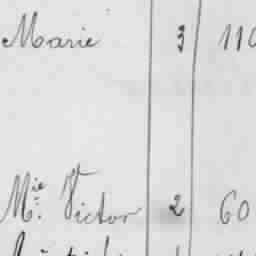 Marie 3 110
Mie. Victor 2 60